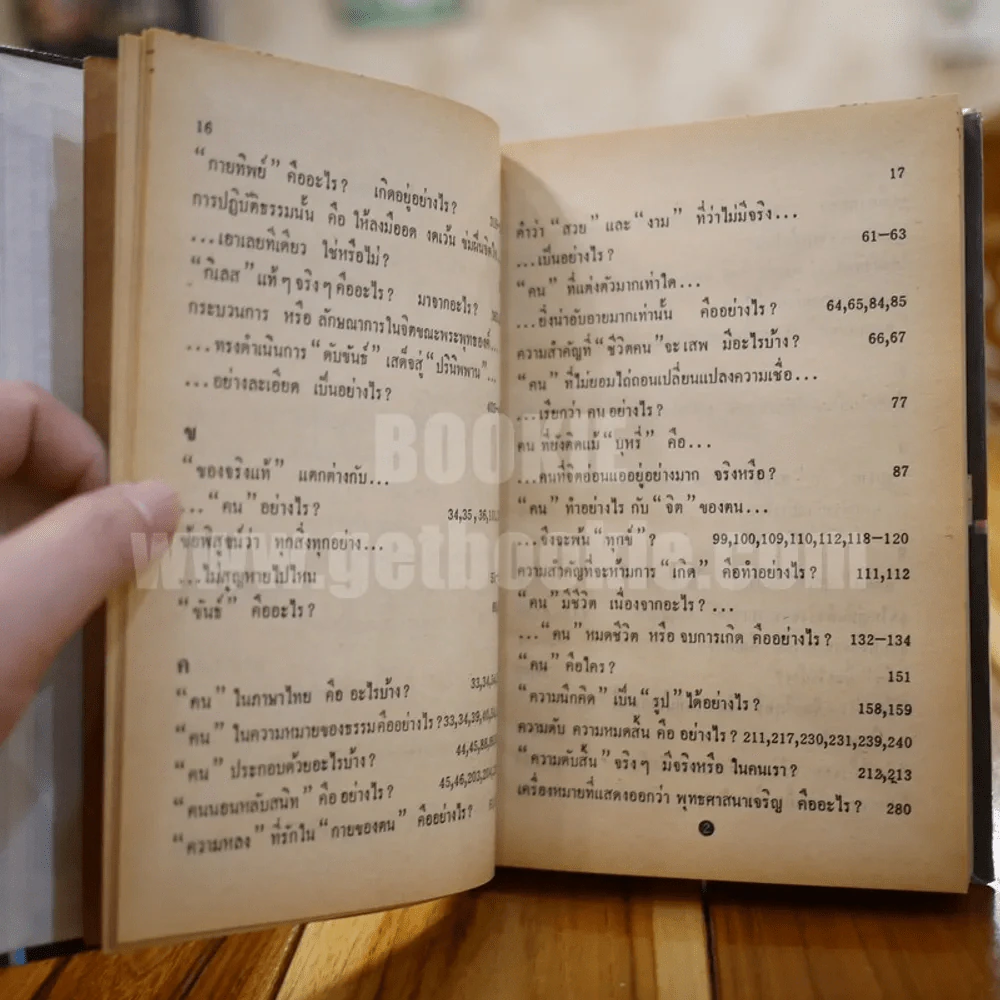 16
“กายทิพย์” คืออะไร? เกิดอยู่อย่างไร?
การปฏิบัติธรรมนั้น คือ ให้ลงมืออด งดเว้น ข่มฝืนจิตใจ...
...เอาเลยทีเดียว ใช่หรือไม่?
“กิเลส” แท้ๆ จริงๆ คืออะไร? มาจากอะไร?
กระบวนการ หรือ ลักษณาการในจิตขณะพระพุทธองค์...
...ทรงดำเนินการ “ดับขันธ์” เสด็จสู่ “ปรินิพพาน”...
...อย่างละเอียด เป็นอย่างไร?
ข
“ของจริงแท้” แตกต่างกับ...
... “คน” อย่างไร? 34,35,36,
ข้อพิสูจน์ว่า ทุกสิ่งทุกอย่าง...
...ไม่สูญหายไปไหน
“ขันธ์” คืออะไร?
ค
“คน” ในภาษาไทย คือ อะไรบ้าง? 33,34,
“คน” ในความหมายของธรรม คืออย่างไร? 33,34,39,40,
“คน” ประกอบด้วยอะไรบ้าง? 44,45,
“คนนอนหลับสนิท” คือ อย่างไร? 45,46,203,
“ความหลง” ที่รักใน “กายของตน” คืออย่างไร?
17
คำว่า “สวย” และ “งาม” ที่ว่าไม่มีจริง...
...เป็นอย่างไร? 61–63
“คน” ที่แต่งตัวมากเท่าใด...
...ยิ่งน่าอับอายมากเท่านั้น คืออย่างไร? 64,65,84,85
ความสำคัญที่ “ชีวิตคน” จะ เสพ มีอะไรบ้าง? 66,67
“คน” ที่ไม่ยอมไถ่ถอนเปลี่ยนแปลงความเชื่อ...
...เรียกว่า คน อย่างไร? 77
คน ที่ยังติดแม้ “บุหรี่” คือ...
...คนที่จิตอ่อนแออยู่อย่างมาก จริงหรือ? 87
“คน” ทำอย่างไร กับ “จิต” ของตน...
...จึงจะพ้น “ทุกข์” ? 99,100,109,110,112,118–120
ความสำคัญที่จะห้ามการ “เกิด” คือทำอย่างไร? 111,112
“คน” มีชีวิต เนื่องจากอะไร? ...
... “คน” หมดชีวิต หรือ จบการเกิด คืออย่างไร? 132–134
“คน” คือใคร? 151
“ความนึกคิด” เป็น “รูป” ได้อย่างไร? 158,159
ความดับ ความหมดสิ้น คือ อย่างไร? 211,217,230,231,239,240
“ความดับสิ้น” จริงๆ มีจริงหรือ ในคนเรา? 212,213
เครื่องหมายที่แสดงออกว่า พุทธศาสนาเจริญ คืออะไร? 280
2
BOOKIE
www.getbookie.com